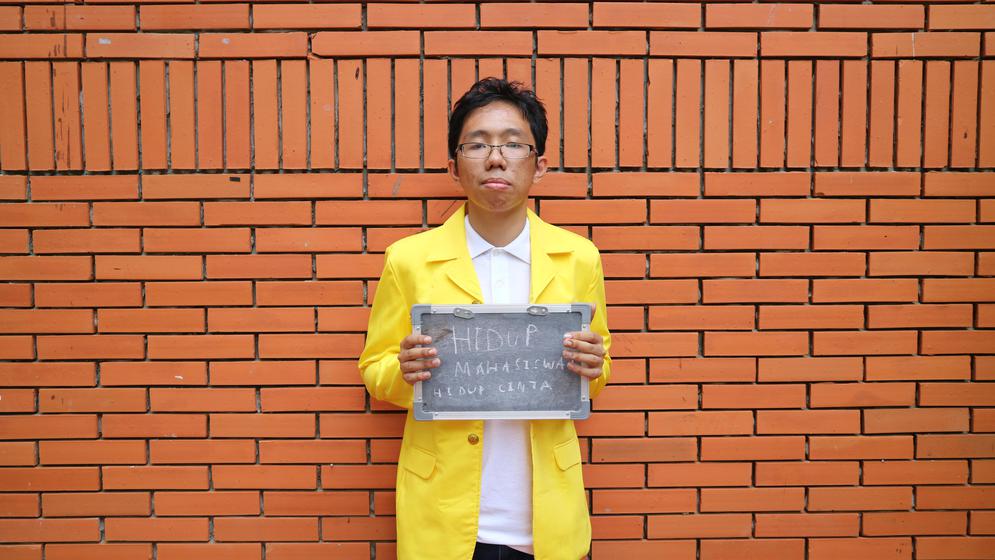 HIDUP
MAHASISWA
HIDUP CINTA